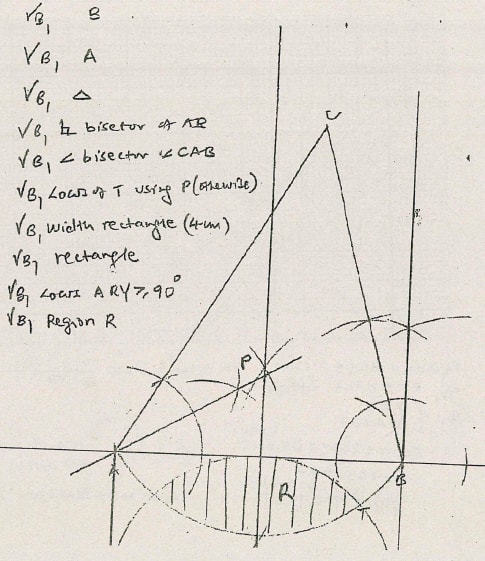 √B₁ B
√B₁ A
√B₁ △
√B₁ bisetor of AB
√B₁ < bisector < CAB
√B₁ Locus of T using P(otherwise)
√B₁ width rectangle (4cm)
√B₁ rectangle
√B₁ Locus ARY ≥ 90°
√B₁ Region R
C
P
A
B
R
T